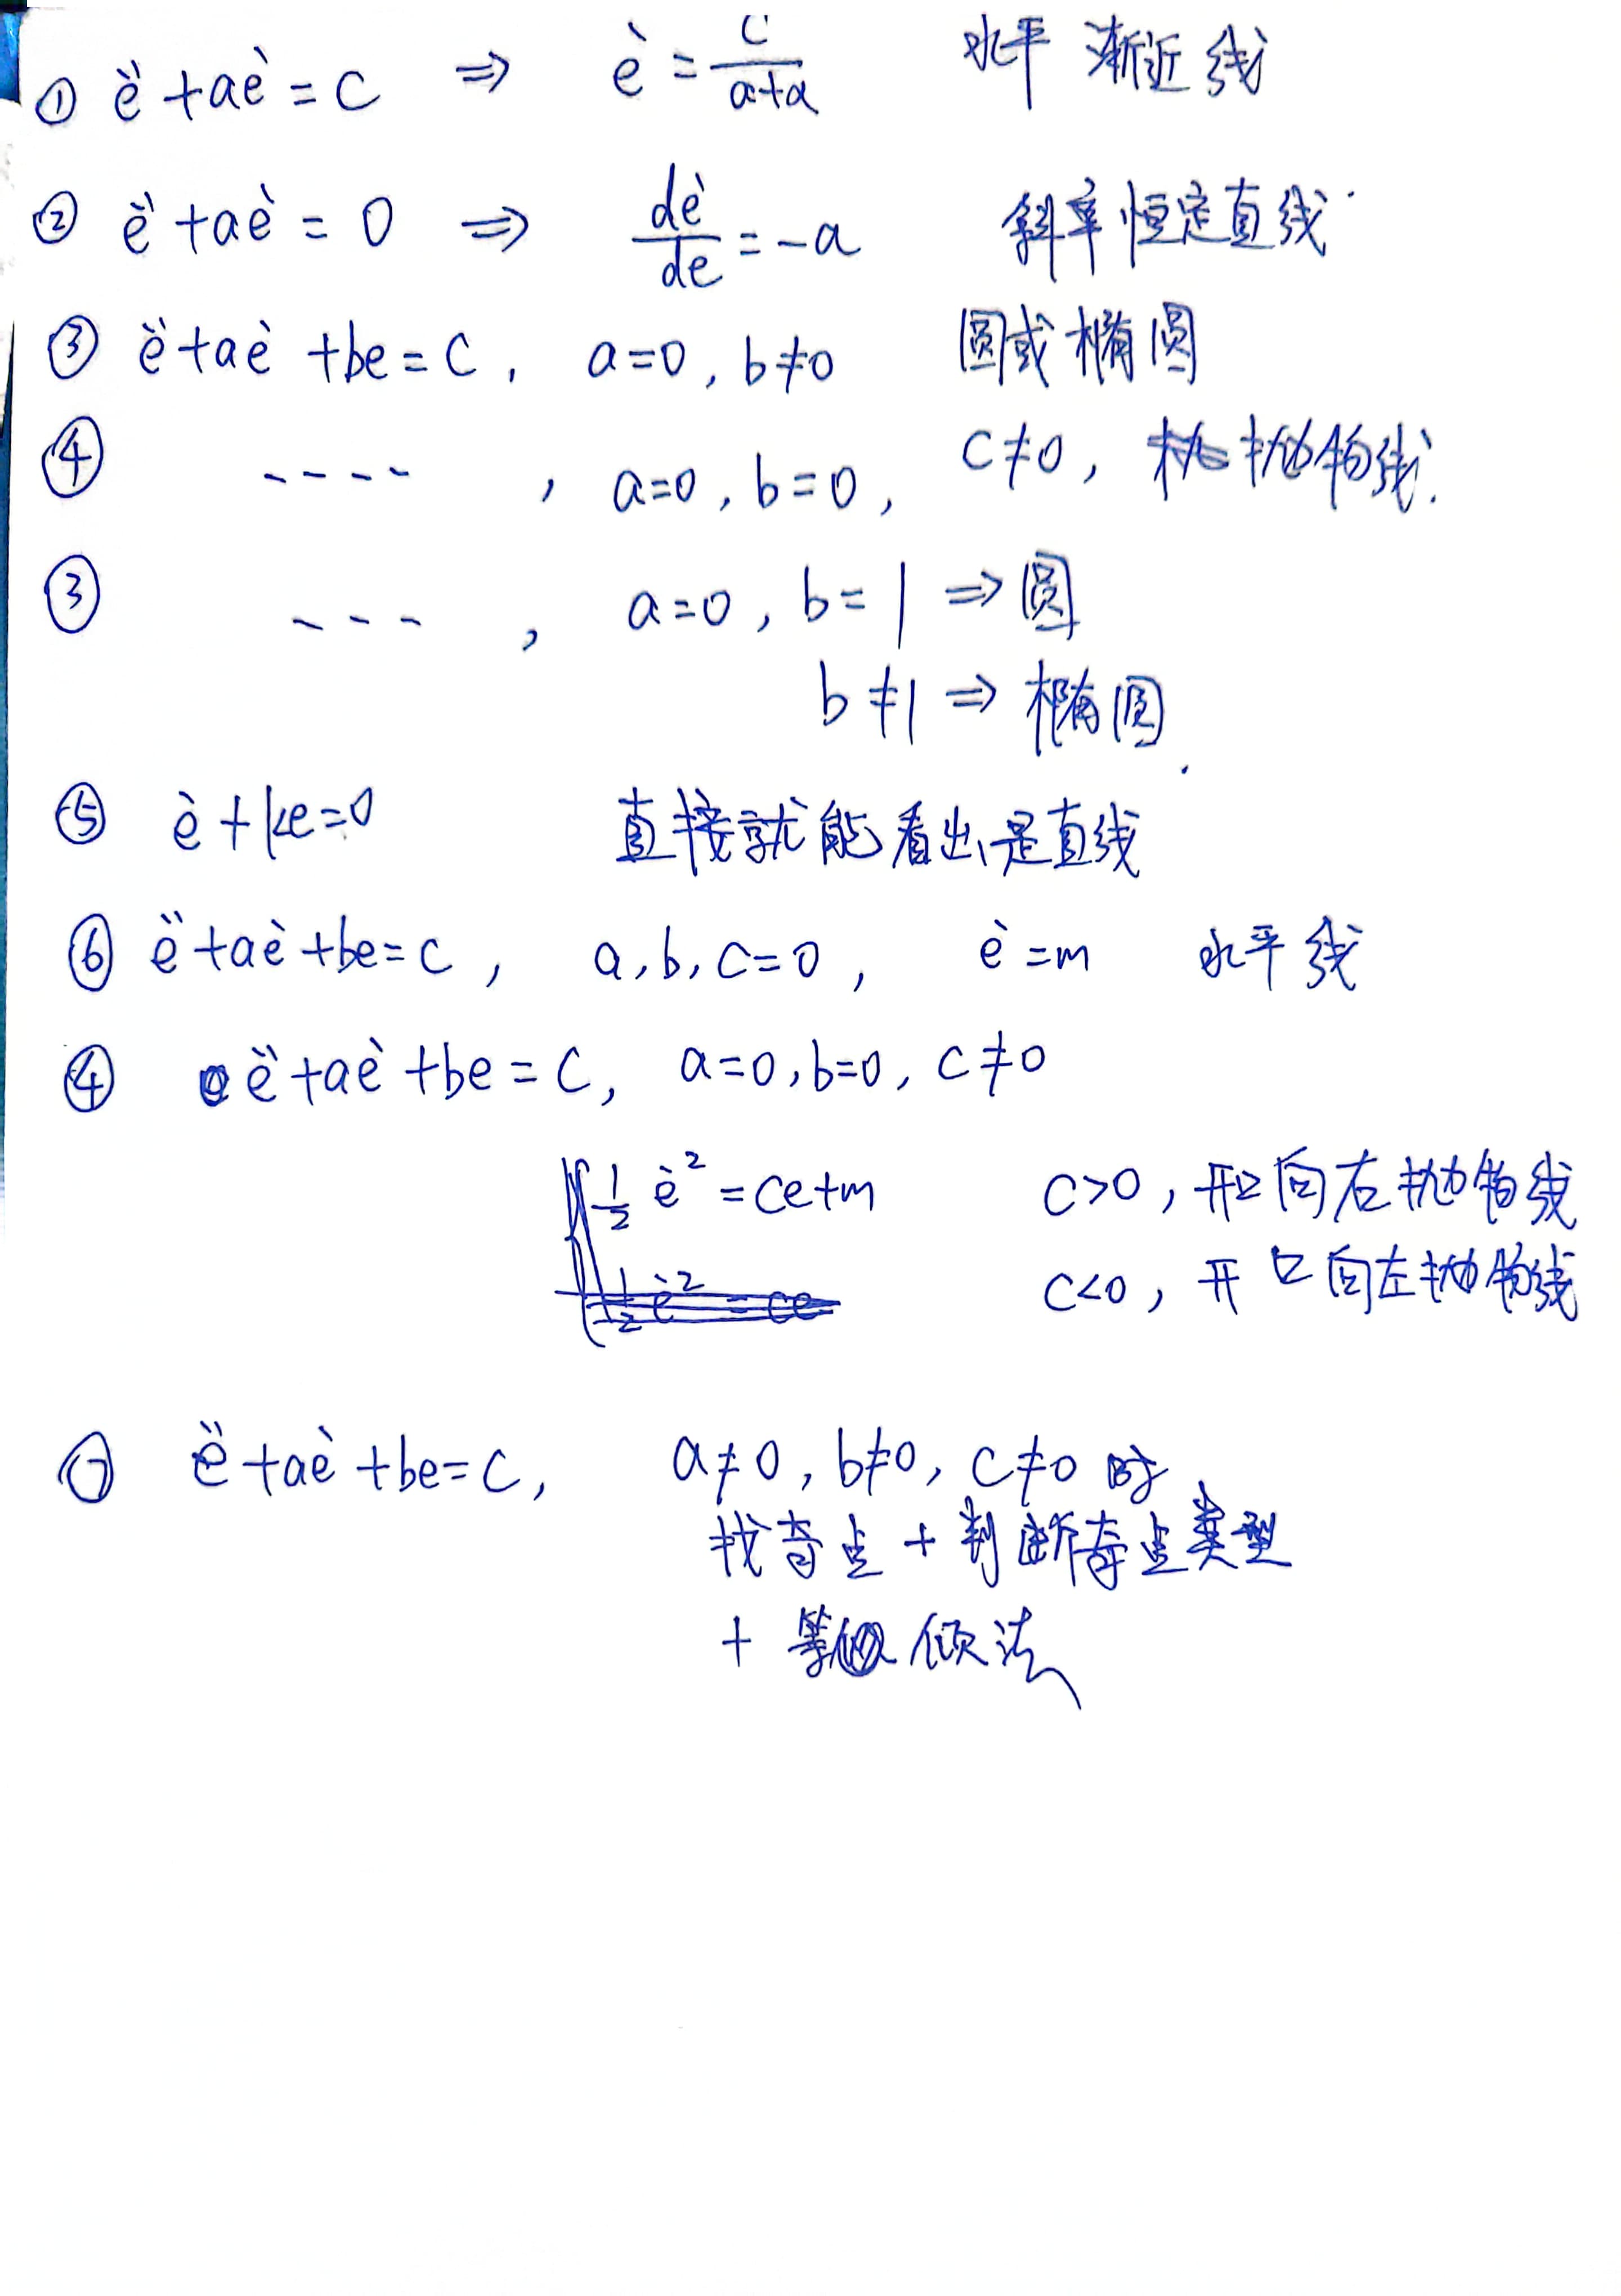 ① ë + aė = c ⇒ ė = c/(a+α) 水平渐近线
② ë + aė = 0 ⇒ dė/de = -a 斜率恒定直线.
③ ë + aė + be = c, a=0, b≠0 圆或椭圆
④ ---- , a=0, b=0, c≠0, 抛物线.
③ --- , a=0, b=1 ⇒ 圆
b≠1 ⇒ 椭圆.
⑤ ė + ke = 0 直接就能看出是直线
⑥ ë + aė + be = c, a, b, c = 0, ė = m 水平线
④ ë + aė + be = c, a=0, b=0, c≠0
1/2 ė² = ce+m c>0, 开口向右抛物线
1/2 ė² = ce c<0, 开口向左抛物线
⑦ ë + aė + be = c, a≠0, b≠0, c≠0 时
找奇点 + 判断奇点类型
+ 等倾法